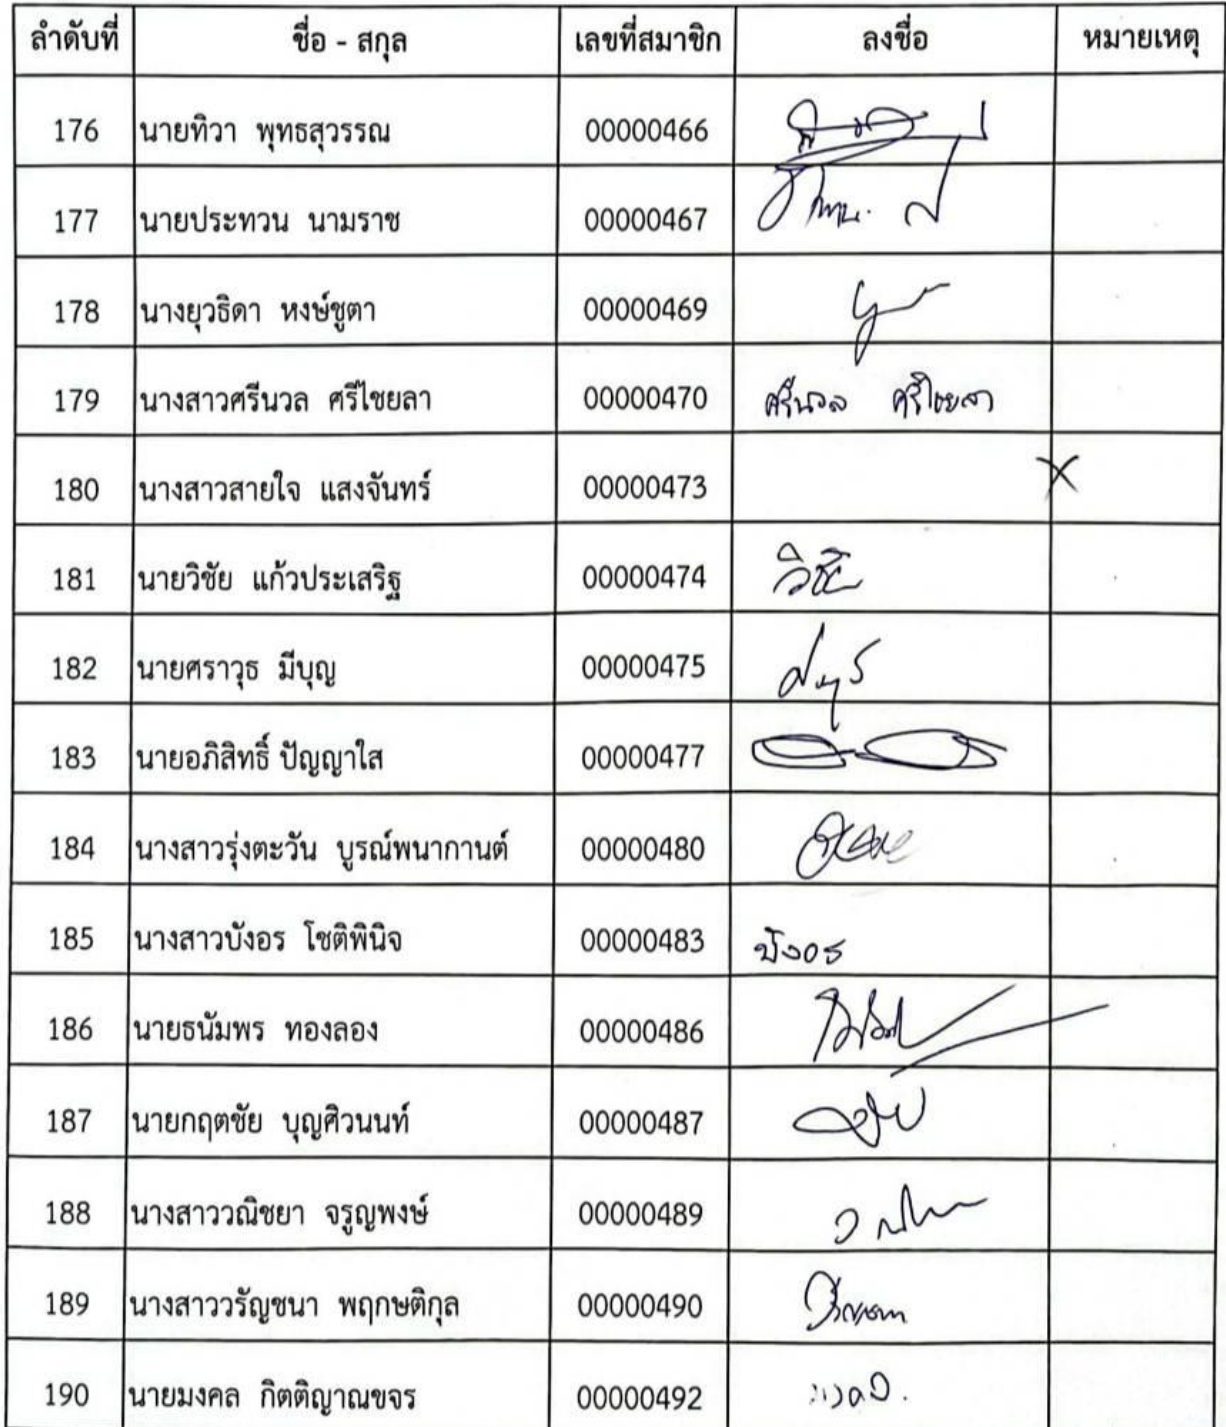 ลำดับที่ ชื่อ - สกุล เลขที่สมาชิก ลงชื่อ หมายเหตุ
176 นายทิวา พุทธสุวรรณ 00000466
177 นายประทวน นามราช 00000467
178 นางยุวธิดา หงษ์ชูตา 00000469
179 นางสาวศรีนวล ศรีไชยลา 00000470 ศรีนวล ศรีไชยลา
180 นางสาวสายใจ แสงจันทร์ 00000473 X
181 นายวิชัย แก้วประเสริฐ 00000474 วิชัย
182 นายศราวุธ มีบุญ 00000475
183 นายอภิสิทธิ์ ปัญญาใส 00000477
184 นางสาวรุ่งตะวัน บูรณ์พนากานต์ 00000480
185 นางสาวบังอร โชติพินิจ 00000483 บังอร
186 นายธนัมพร ทองลอง 00000486
187 นายกฤตชัย บุญศิวนนท์ 00000487
188 นางสาววณิชยา จรูญพงษ์ 00000489
189 นางสาววรัญชนา พฤกษติกุล 00000490
190 นายมงคล กิตติญาณขจร 00000492